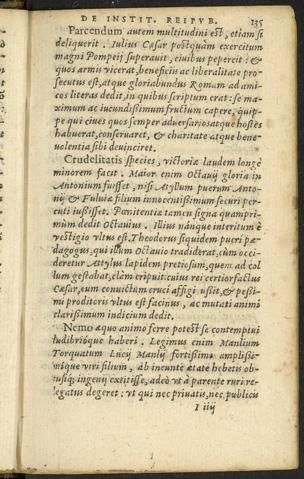 DE INSTIT. REIPVB. 135
Parcendum autem multitudini est, etiam si
deliquerit. Iulius Cæsar postquam exercitum
magni Pompeij superauit, ciuibus pepercit: &
quos armis vicerat, beneficiis ac liberalitate pro-
secutus est, atque gloriabundus Romam ad ami-
cos literas dedit, in quibus scriptum erat: se ma-
ximum ac iucundissimum fructum capere, quip-
pe qui ciues quos semper aduersarios atque hostes
habuerat, conseruaret, & charitate atque bene-
uolentia sibi deuinciret.
Crudelitatis species, victoriæ laudem longè
minorem facit. Maior enim Octauij gloria in
Antonium fuisset, nisi Atyllum puerum Anto-
nij & Fuluiæ filium innocentissimum securi per-
cuti iussisset. Pœnitentiæ tamen signa quampri-
mùm dedit Octauius. Illius nánque interitum è
vestigio vltus est, Theodorus siquidem pueri pæ-
dagogus, qui illum Octauio tradiderat, cùm occi-
deretur Attylus lapidem pretiosum, quem ad col
lum gestabat, clàm eripuit: cuius rei certior factus
Cæsar, eum conuictum cruci affigi iußit, & peßi-
mi proditoris vltus est facinus, ac mutati animi
clarißimum indicium dedit.
Nemo æquo animo ferre potest se contemptui
ludibrióque haberi. Legimus enim Manlium
Torquatum Lucij Manlij fortißimi amplißi-
mique viri filium, ab ineunte ætate hebetis ob-
tusiq; ingenij extitisse, adeò vt à parente ruri re-
legatus degeret: vt qui nec priuatis, nec publicis
I iiij